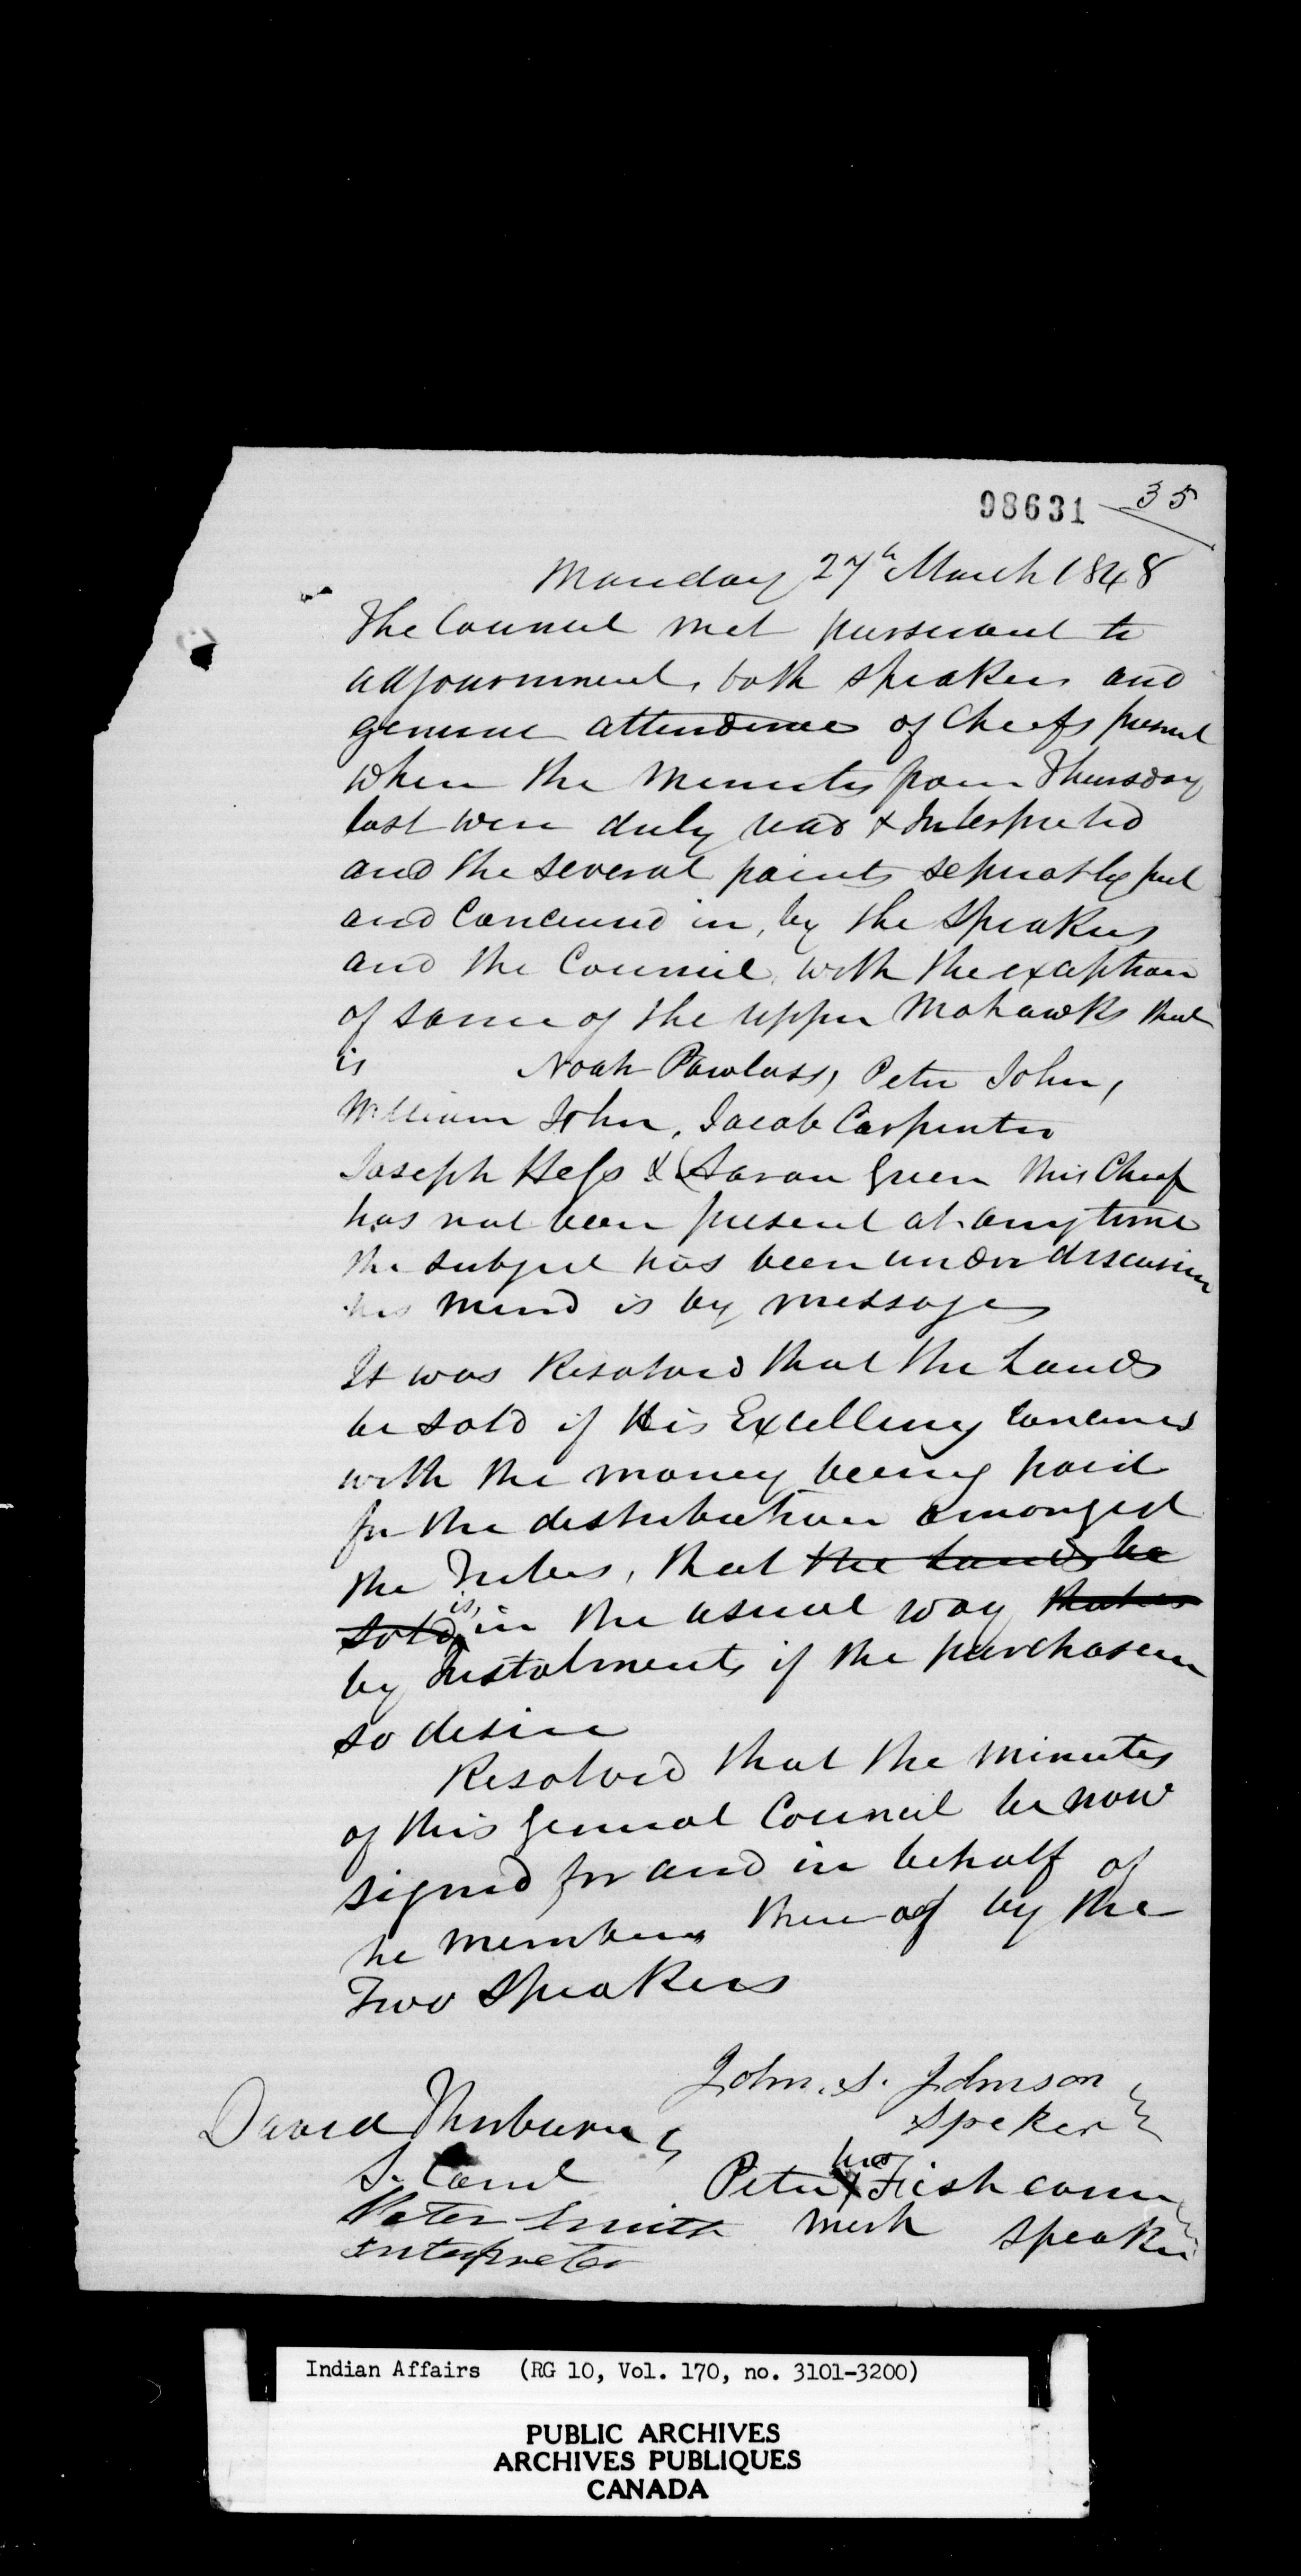 98631 35
Monday 27th March 1848
The Council met pursuant to
adjournment, both speakers and
general attendence of Cheefs present
when the Minutes from Thursday
last were duly read & Interpreted
and the several points sepratly put
and Concurred in, by the Speakers
and the Council, with the exception
of some of the upper Mohawks that
is Noah Powlass, Peter John,
William John, Jacob Carpenter
Joseph Hess & (Aaron Green this Cheef
has not been present at any time
the subject has been under discussion
his mind is by message
It was Resolved that the Lands
be sold if His Excellency concurrs
with the money being paid
for the distribution amongst
the Tribes, that the Lands be
sold is, in the usual way
by Instalments if the purchasers
so desire
Resolved that the Minutes
of this General Council be now
signed for and in behalf of
he members there of by the
Two Speakers
John. S. Johnson
Speker
David Thorburn
S. Comd
Peter his X Fish carrier
mark Speaker
Peter Smith
Interpreter
Indian Affairs (RG 10, Vol. 170, no. 3101-3200)
PUBLIC ARCHIVES
ARCHIVES PUBLIQUES
CANADA